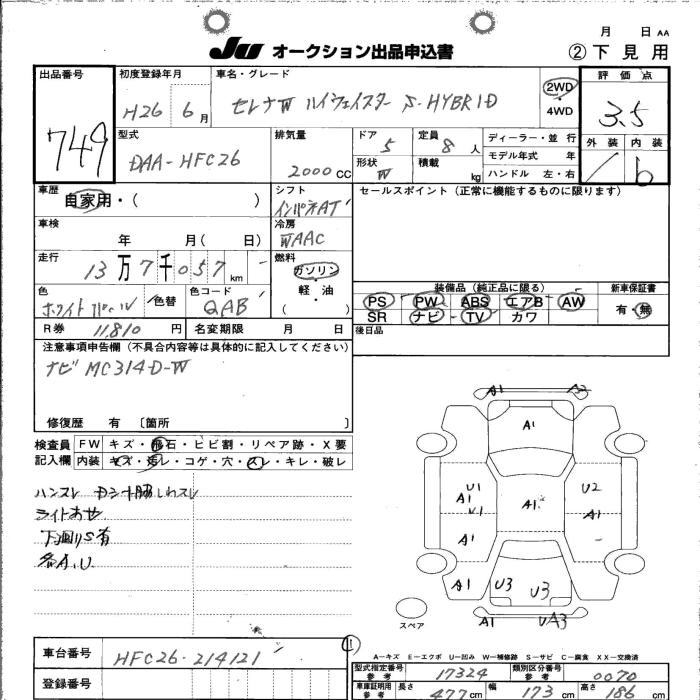 月 日 AA
JU オークション出品申込書 ②下見用
出品番号 初度登録年月 車名・グレード 評価点
749 H26 6月 セレナW ハイウェイスター S-HYBRID 2WD 4WD 3.5
型式 排気量 ドア 定員 ディーラー・並行 外装 内装
DAA-HFC26 2000cc 5 8人 モデル年式 年
形状 積載 ハンドル 左・右
W kg
b
車歴 シフト セールスポイント(正常に機能するものに限ります)
自家用・( ) インパネAT
車検 冷房
年 月( 日) WAAC
走行 燃料
13万7千057km ガソリン
軽・油
( )
色 色コード 装備品(純正品に限る) 新車保証書
ホワイトパール 色替 QAB PS PW ABS エアB AW 有・無
SR ナビ・TV カワ
R券 11,810円 名変期限 月 日 後日品
注意事項申告欄(不具合内容等は具体的に記入してください)
ナビ MC314D-W
修復歴 有 〔箇所 〕
検査員 FW キズ・飛石・ヒビ割・リペア跡・X要
記入欄 内装 キズ・汚レ・コゲ・穴・スレ・キレ・破レ
ハンスレ Dシート脇しわスレ
ライトあせ
下廻りS有
各A.U
A1 A2
A1
U1 U2
A1 A1 A1
U1
A1 A1
A1 U3 U3
A1 UA3
スペア
A-キズ E-エクボ U-凹み W-補修跡 S-サビ C-腐食 XX-交換済
車台番号 HFC26-214121
型式指定番号 参考 17324 類別区分番号 参考 0070
登録番号
車庫証明用 参考 長さ 477cm 幅 173cm 高さ 186cm